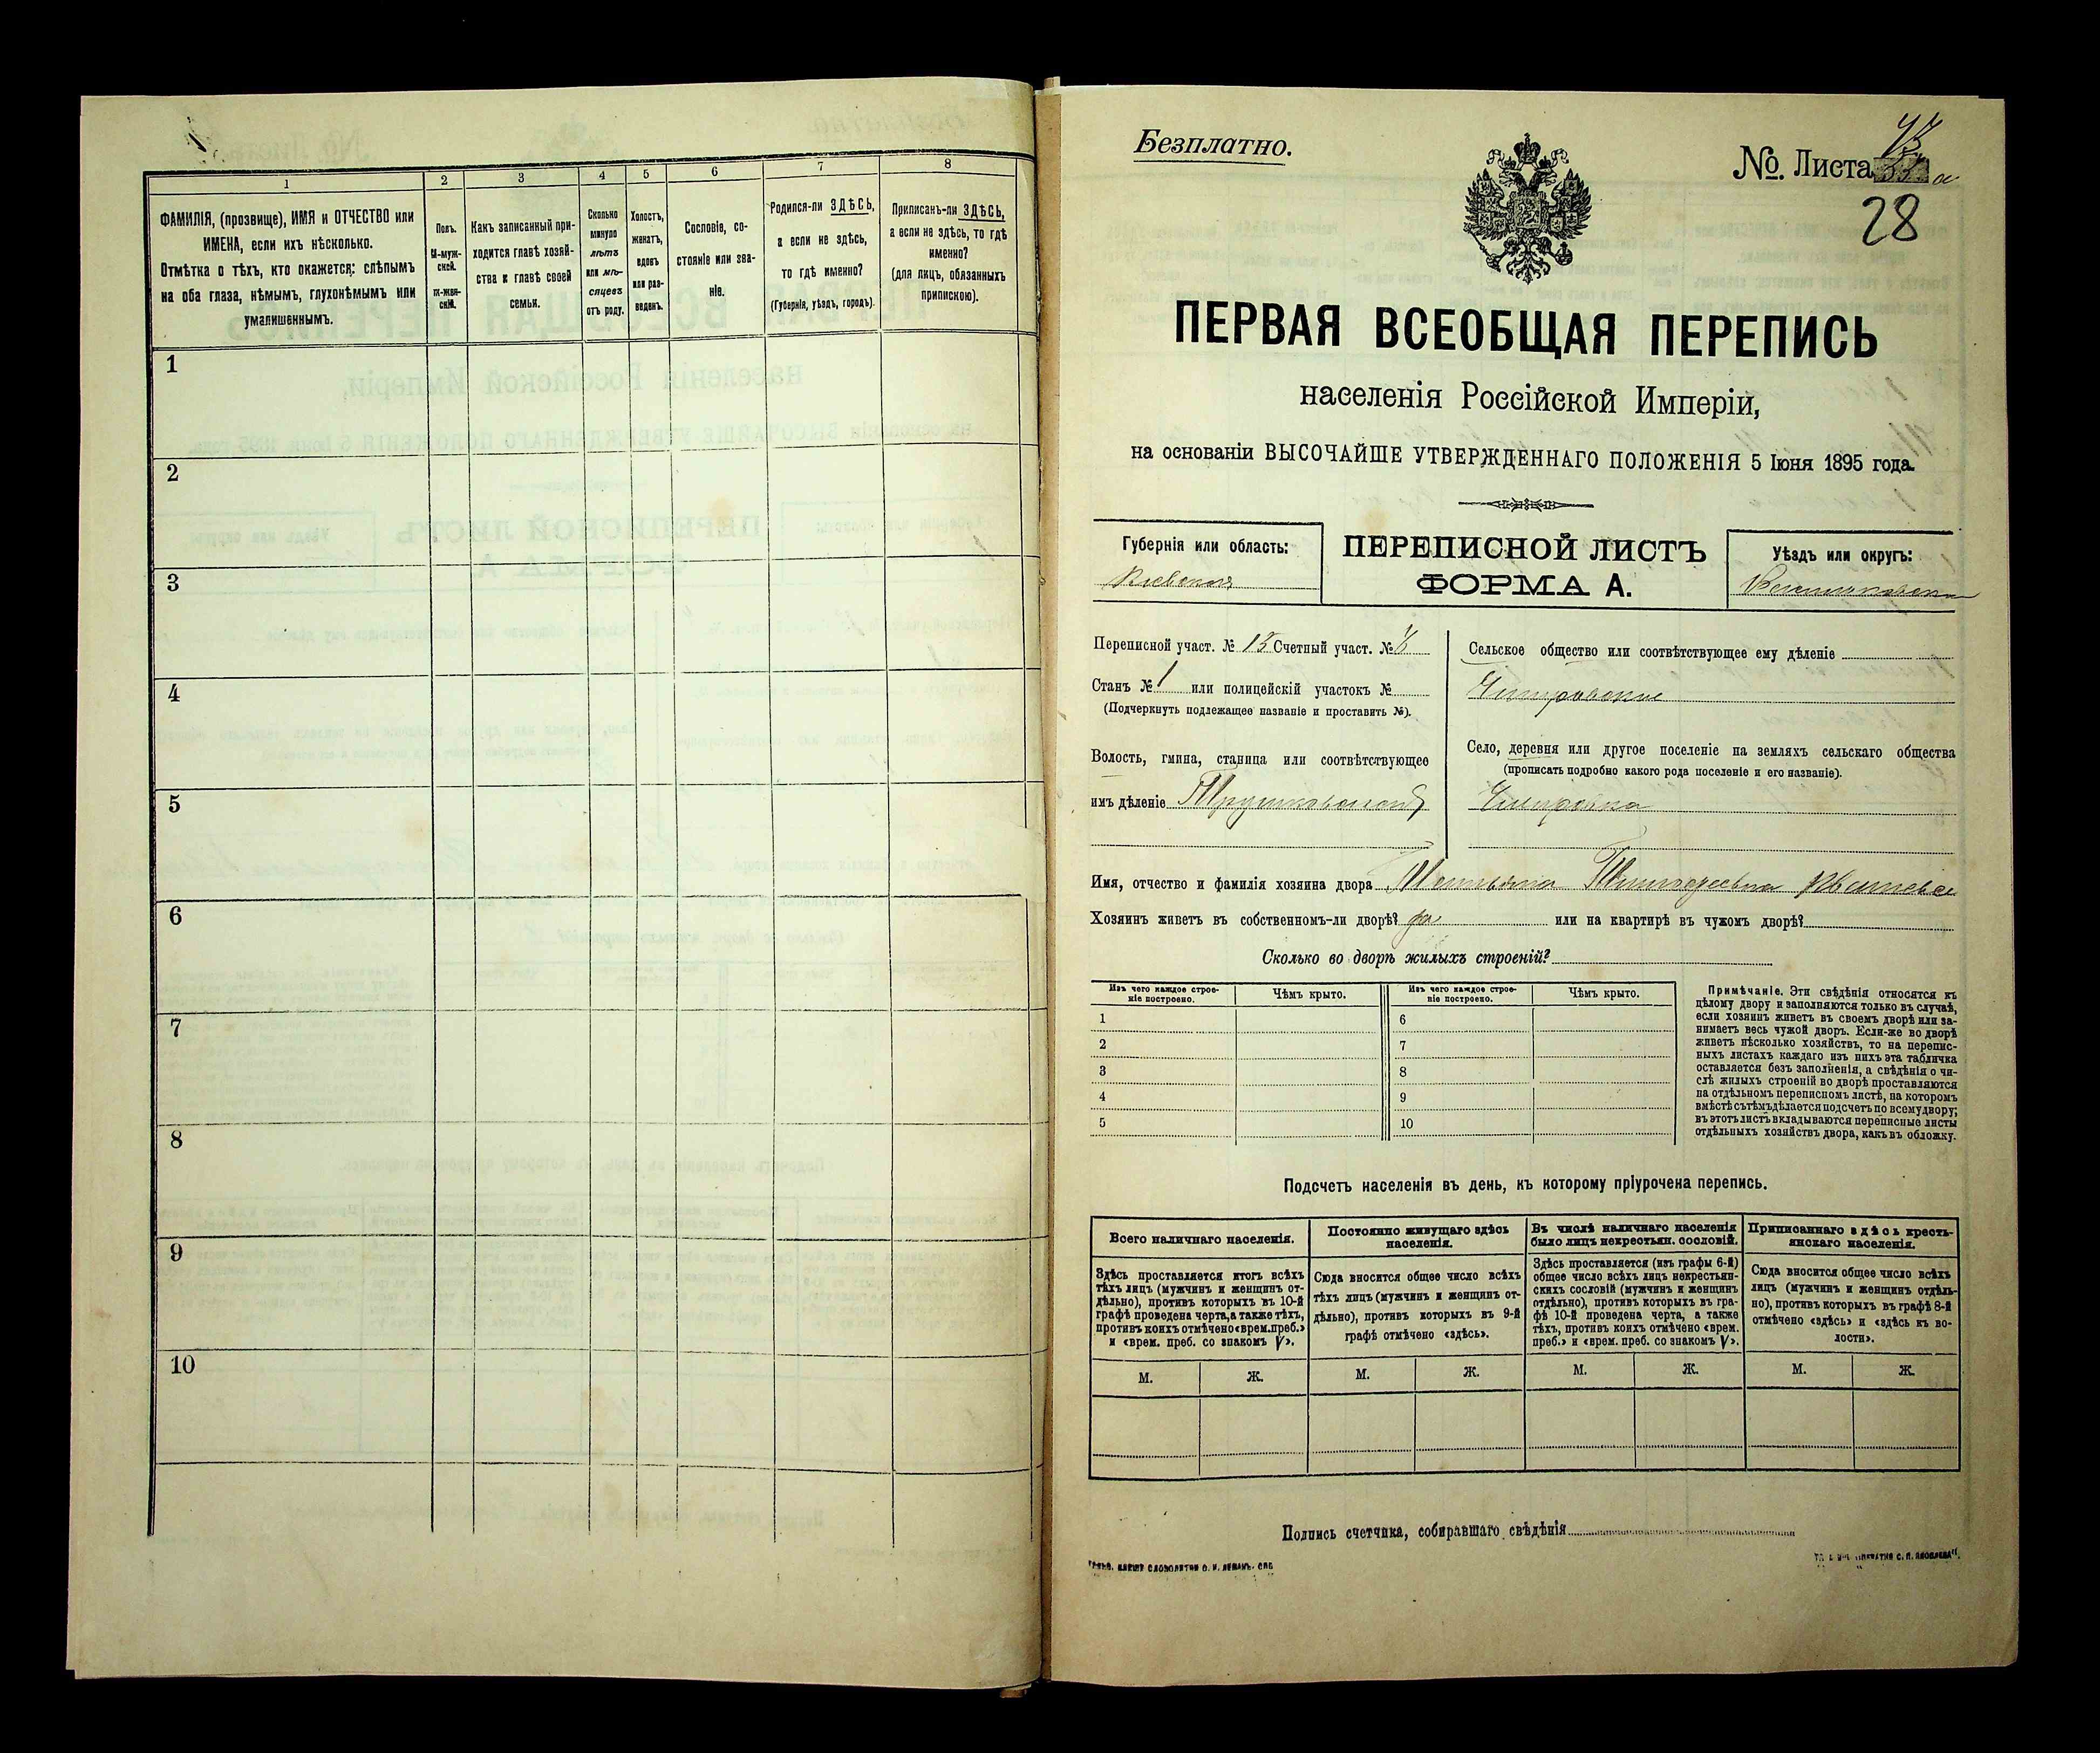 1 2 3 4 5 6 7 8
ФАМИЛІЯ, (прозвище), ИМЯ и ОТЧЕСТВО или
ИМЕНА, если ихъ нѣсколько.
Отмѣтка о тѣхъ, кто окажется: слѣпымъ
на оба глаза, нѣмымъ, глухонѣмымъ или
умалишеннымъ.
Полъ.
М-муж-
ской.
Ж-жен-
скій.
Какъ записанный при-
ходится главѣ хозяй-
ства и главѣ своей
семьи.
Сколько
минуло
лѣтъ
или мѣ-
сяцевъ
отъ роду.
Холостъ,
женатъ,
вдовъ
или раз-
веденъ.
Сословіе, со-
стояніе или зва-
ніе.
Родился-ли ЗДѢСЬ,
а если не здѣсь,
то гдѣ именно?
(Губернія, уѣздъ, городъ).
Приписанъ-ли ЗДѢСЬ,
а если не здѣсь, то гдѣ
именно?
(для лицъ, обязанныхъ
припискою).
1
2
3
4
5
6
7
8
9
10
Безплатно.
№. Листа
28
ПЕРВАЯ ВСЕОБЩАЯ ПЕРЕПИСЬ
населенія Россійской Имперіи,
на основаніи ВЫСОЧАЙШЕ УТВЕРЖДЕННАГО ПОЛОЖЕНІЯ 5 Іюня 1895 года.
Губернія или область:
Кіевская
ПЕРЕПИСНОЙ ЛИСТЪ
ФОРМА А.
Уѣздъ или округъ:
Переписной участ. № 15 Счетный участ. №
Станъ № 1 или полицейскій участокъ №
(Подчеркнуть подлежащее названіе и проставить №).
Волость, гмина, станица или соотвѣтствующее
имъ дѣленіе
Сельское общество или соотвѣтствующее ему дѣленіе
Село, деревня или другое поселеніе на земляхъ сельскаго общества
(прописать подробно какого рода поселеніе и его названіе).
Имя, отчество и фамилія хозяина двора
Хозяинъ живетъ въ собственномъ-ли дворѣ? да или на квартирѣ въ чужомъ дворѣ?
Сколько во дворѣ жилыхъ строеній?
Изъ чего каждое строе-
ніе построено.
Чѣмъ крыто.
Изъ чего каждое строе-
ніе построено.
Чѣмъ крыто.
1 6
2 7
3 8
4 9
5 10
Примѣчаніе. Эти свѣдѣнія относятся къ
цѣлому двору и заполняются только въ случаѣ,
если хозяинъ живетъ въ своемъ дворѣ или за-
нимаетъ весь чужой дворъ. Если-же во дворѣ
живетъ нѣсколько хозяйствъ, то на перепис-
ныхъ листахъ каждаго изъ нихъ эта табличка
оставляется безъ заполненія, а свѣдѣнія о чи-
слѣ жилыхъ строеній во дворѣ проставляются
на отдѣльномъ переписномъ листѣ, на которомъ
вмѣстѣ съ тѣмъ дѣлается подсчетъ по всему двору;
въ этотъ листъ вкладываются переписные листы
отдѣльныхъ хозяйствъ двора, какъ въ обложку.
Подсчетъ населенія въ день, къ которому пріурочена перепись.
Всего наличнаго населенія.
Постоянно живущаго здѣсь
населенія.
Въ числѣ наличнаго населенія
было лицъ некрестьян. сословій.
Приписаннаго здѣсь кресть-
янскаго населенія.
Здѣсь проставляется итогъ всѣхъ
тѣхъ лицъ (мужчинъ и женщинъ от-
дѣльно), противъ которыхъ въ 10-й
графѣ проведена черта, а также тѣхъ,
противъ коихъ отмѣчено «врем. преб.»
и «врем. преб. со знакомъ V».
Сюда вносится общее число всѣхъ
тѣхъ лицъ (мужчинъ и женщинъ от-
дѣльно), противъ которыхъ въ 9-й
графѣ отмѣчено «здѣсь».
Здѣсь проставляется (изъ графы 6-й)
общее число всѣхъ лицъ некрестьян-
скихъ сословій (мужчинъ и женщинъ
отдѣльно), противъ которыхъ въ гра-
фѣ 10-й проведена черта, а также
тѣхъ, противъ коихъ отмѣчено «врем.
преб.» и «врем. преб. со знакомъ V».
Сюда вносится общее число всѣхъ
лицъ (мужчинъ и женщинъ отдѣль-
но), противъ которыхъ въ графѣ 8-й
отмѣчено «здѣсь» и «здѣсь къ во-
лости».
М. Ж. М. Ж. М. Ж. М. Ж.
Подпись счетчика, собиравшаго свѣдѣнія